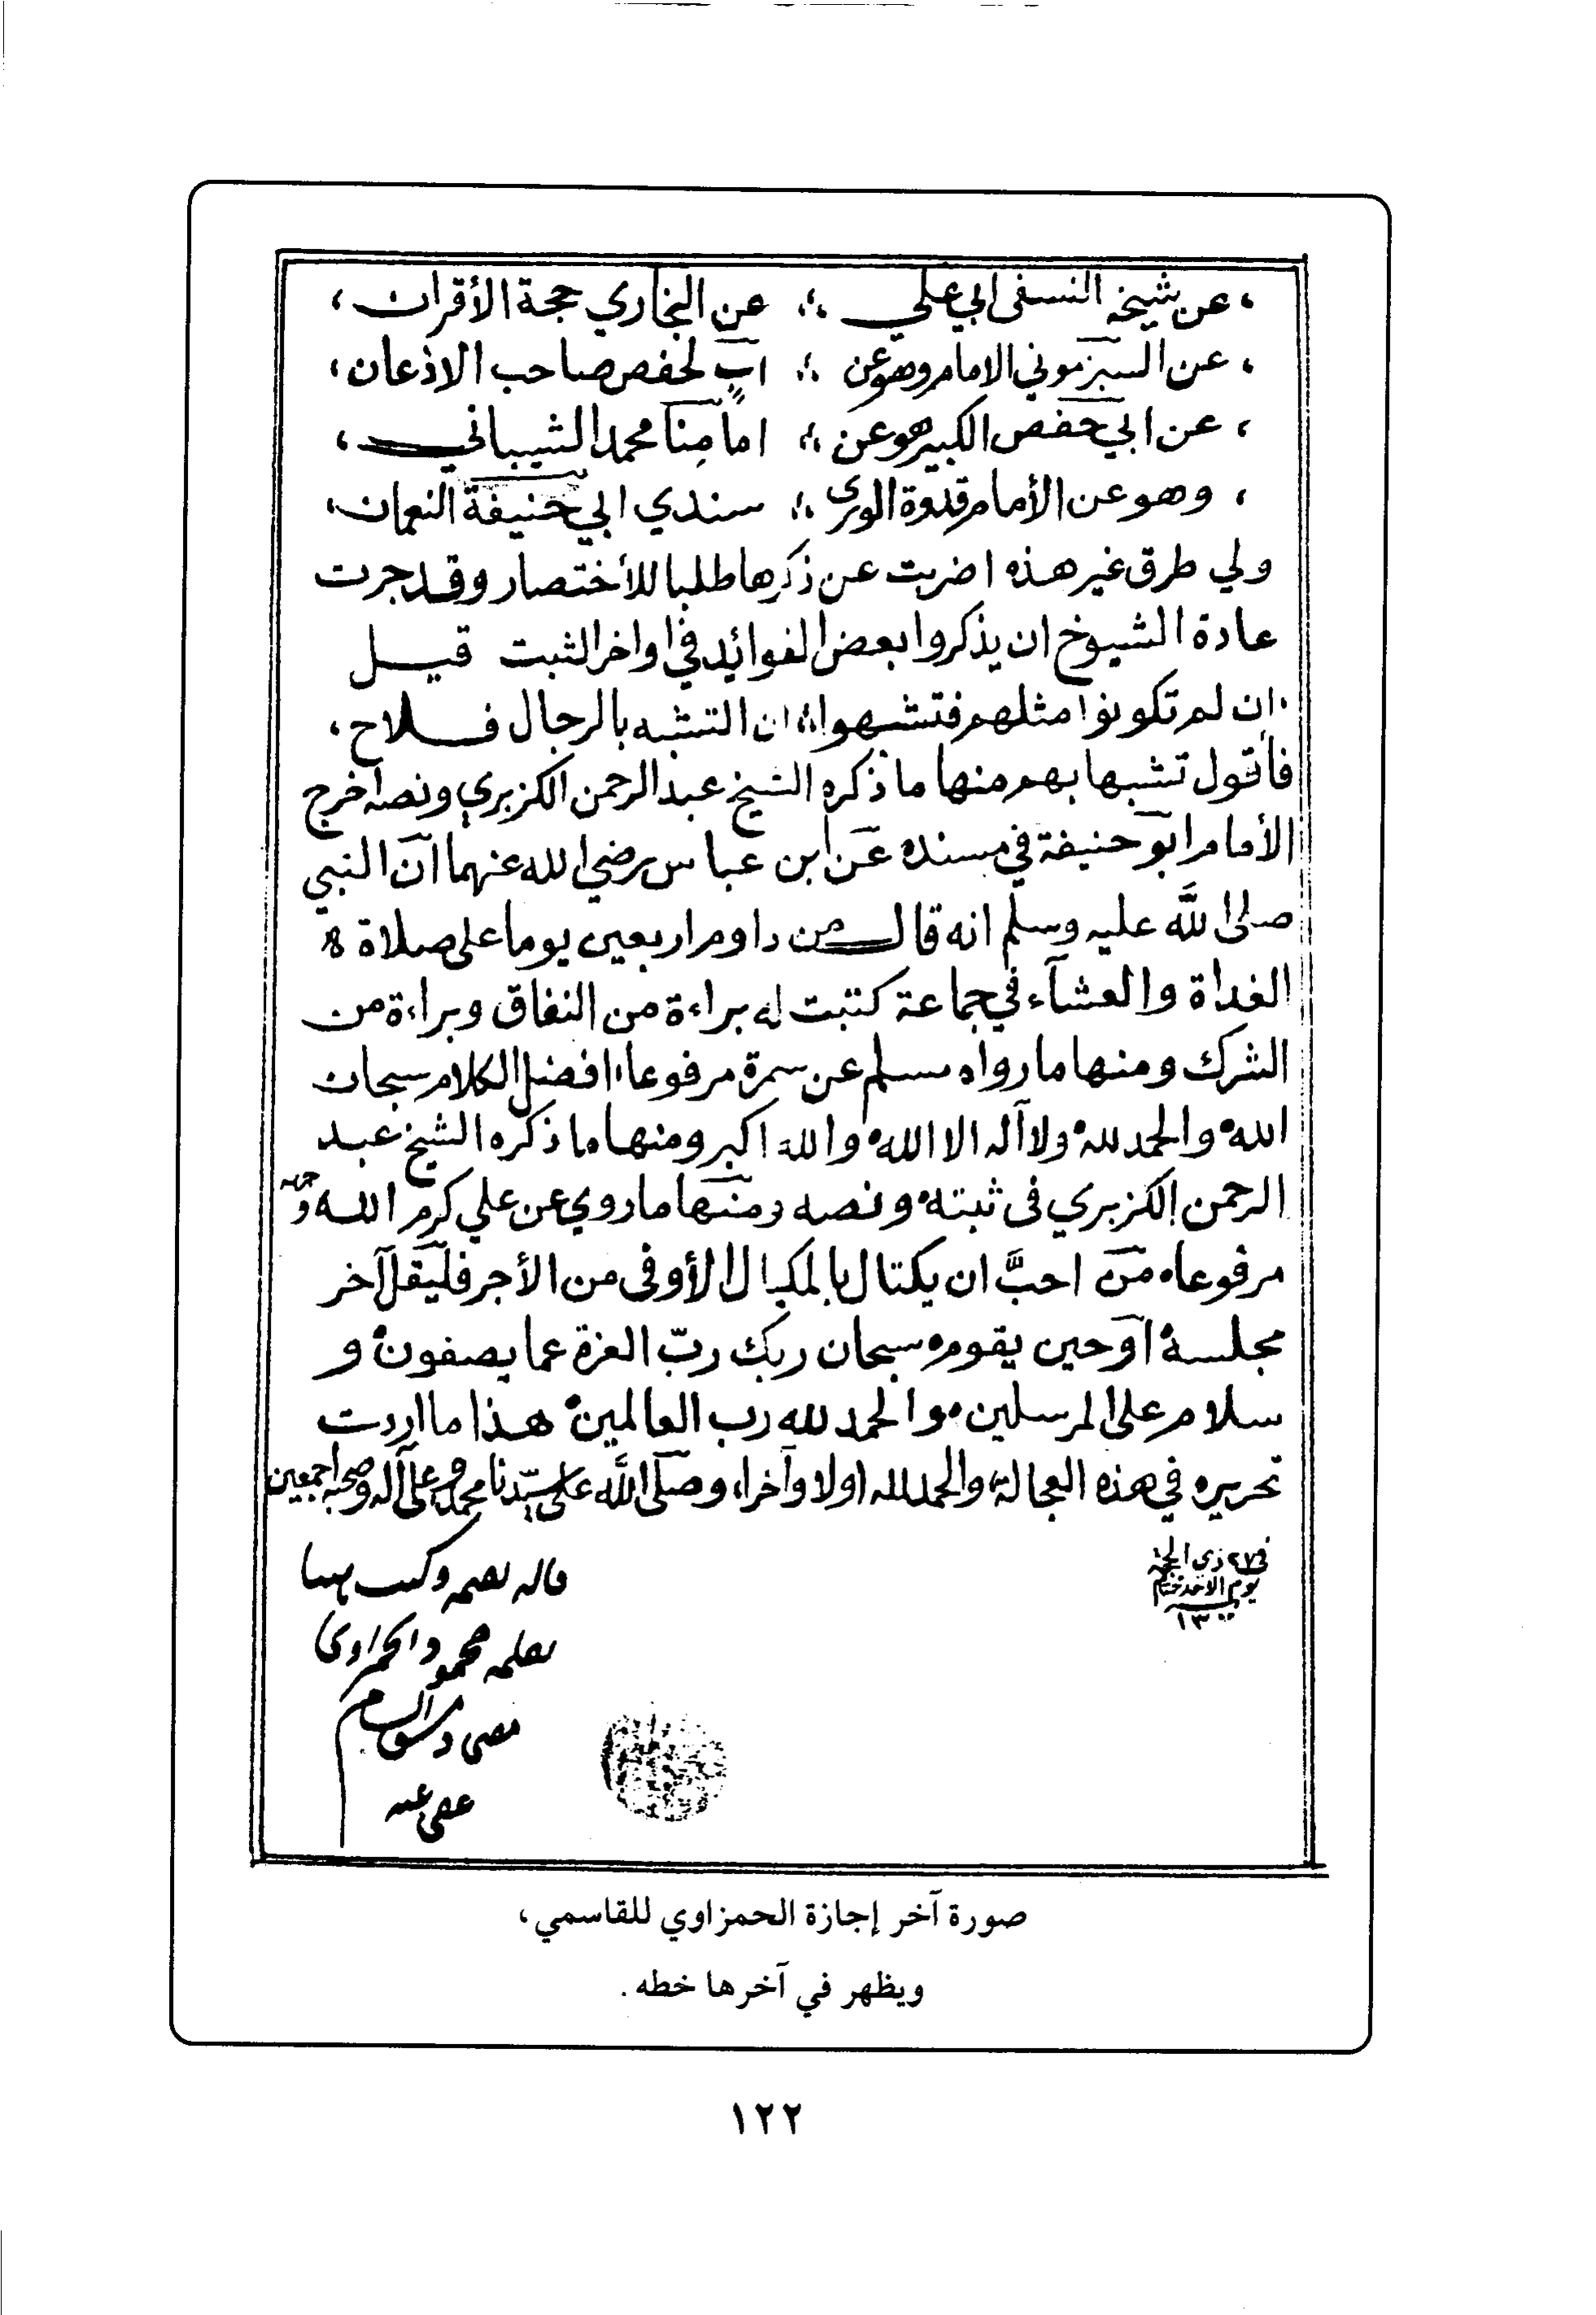 ، عن شيخه النسفى ابي علي ؛ عن البخاري حجة الأقران ،
، عن السبزموني الامام وهو عن ؛ اب لحفص صاحب الاذعان ،
، عن ابي حفص الكبير هو عن ؛ امامنا محمد الشيباني ،
، وهو عن الأمام قدوة الورى ؛ سندي ابي حنيفة النعمان ،
ولي طرق غير هذه اضربت عن ذكرها طلبا للأختصار وقد جرت
عادة الشيوخ ان يذكروا بعض الفوائد في اواخر الثبت قيل
، ان لم تكونوا مثلهم فتشبهوا ؛ ان التشبه بالرجال فلاح ،
فأقول تشبها بهم منها ما ذكره الشيخ عبد الرحمن الكزبري ونصه اخرج
الأمام ابو حنيفة في مسنده عن ابن عباس رضي الله عنهما ان النبي
صلى الله عليه وسلم انه قال من داوم اربعين يوما على صلاة
الغداة والعشآء في جماعة كتبت له براءة من النفاق وبراءة من
الشرك ومنها ما رواه مسلم عن سمرة مرفوعا افضل الكلام سبحان
الله والحمد لله ولا آله الا الله والله اكبر ومنها ما ذكره الشيخ عبد
الرحمن الكزبري في ثبته ونصه ومنها ما روي عن علي كرم الله وجهه
مرفوعا من احبَّ ان يكتال بالمكيال الأوفى من الأجر فليقل آخر
مجلسه او حين يقوم سبحان ربك ربّ العزة عما يصفون و
سلام على المرسلين والحمد لله رب العالمين هذا ما اردت
تحريره في هذه العجالة والحمد لله اولا وآخرا، وصلى الله على سيّدنا محمد وعلى آله وصحبه اجمعين
في ٢٧ ذى الحجة
يوم الاحد ختام
١٣
قاله بفمه وكتب
بقلمه محمود الحمزاوى
مفتى دمشق الشام
عفى عنه
صورة آخر إجازة الحمزاوي للقاسمي،
ويظهر في آخرها خطه .
١٢٢